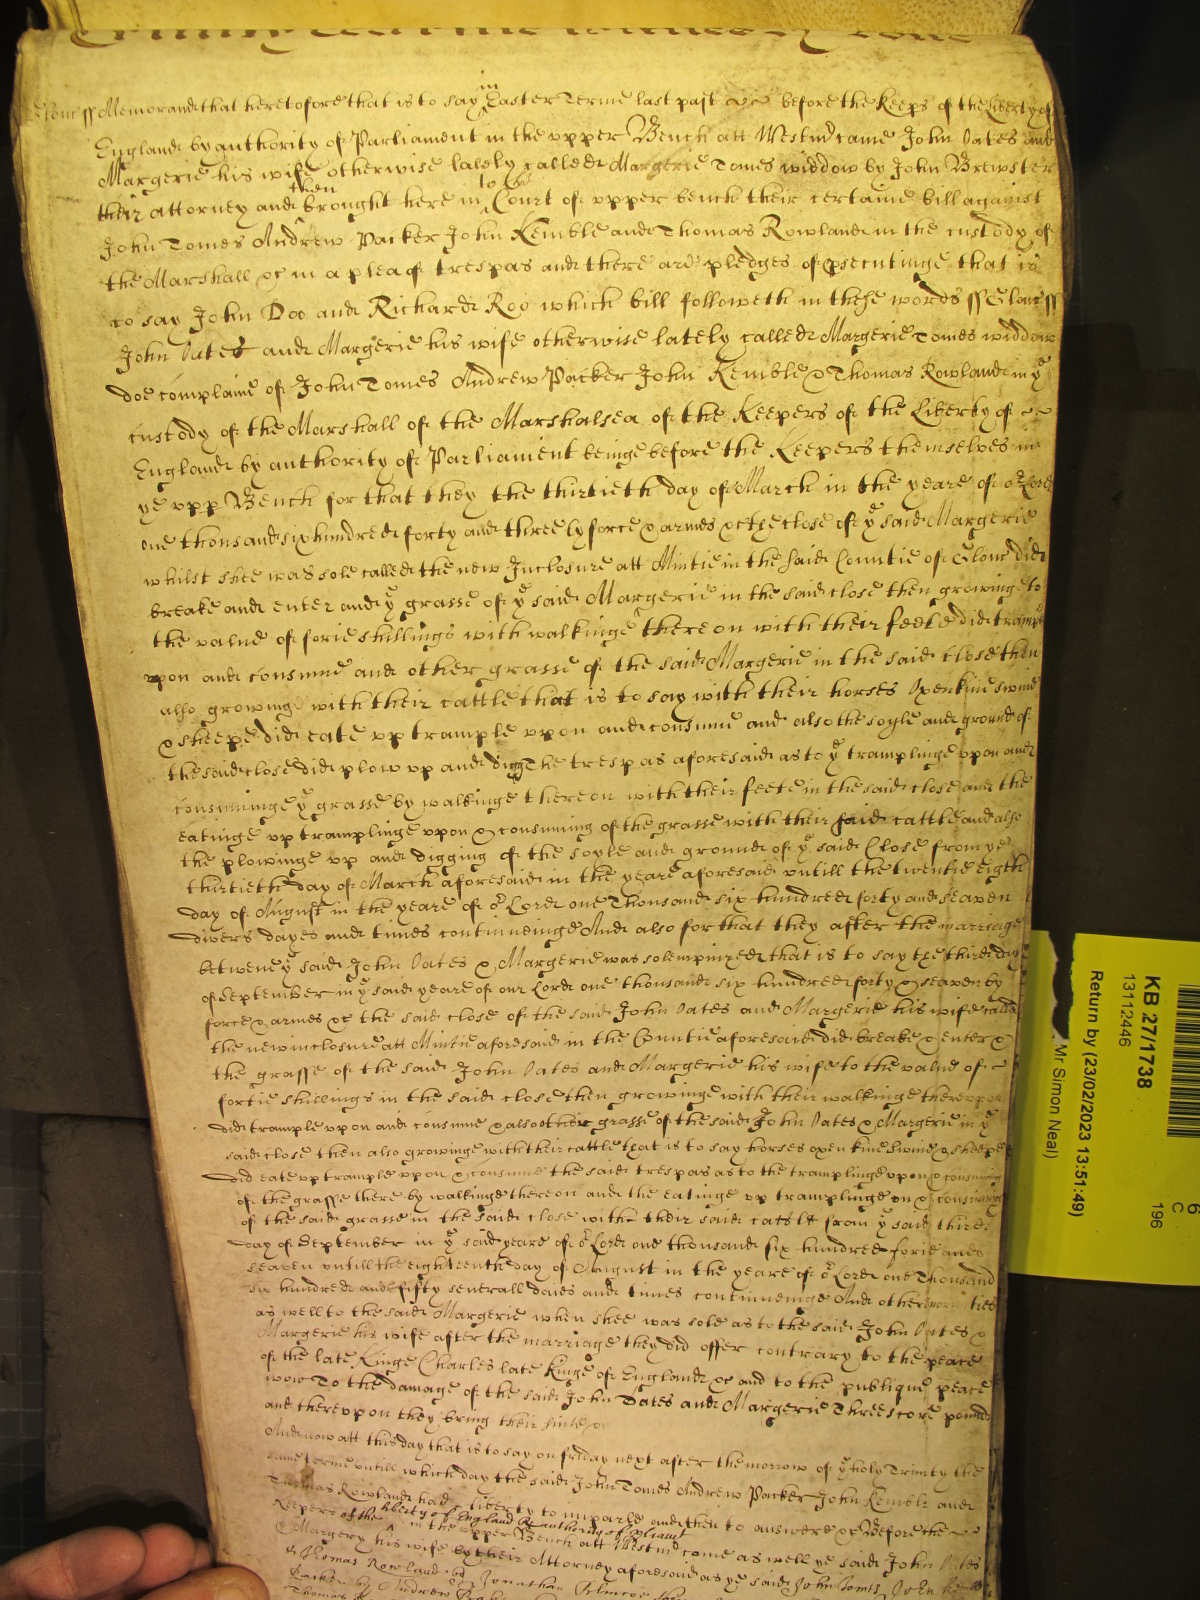 Glouc ss Memorand that heretofore that is to say in Easter Terme last past before the Keeps of the Liberty of
England by authority of Parliament in the upper Bench att Westmr came John Oates and
Margerie his wife otherwise lately called Margerie Tomes widdow by John Brewster
their attorney and then brought here into the Court of upper bench their certaine bill against
John Tomes Andrew Packer John Kemble and Thomas Rowland in the custody of
the Marshall &c in a plea of trespas and there are pledges of psecutinge that is
to say John Doo and Richard Roo which bill followeth in these words ss Glouc ss
John Oates and Margerie his wife otherwise lately called Margerie Tomes widdow
doe complaine of John Tomes Andrew Packer John Kemble & Thomas Rowland in ye
custody of the Marshall of the Marshalsea of the Keepers of the Liberty of
England by authority of Parliament beinge before the Keepers themselves in
ye upp Bench for that they the thirtieth day of March in the yeare of or Lord
one thousand six hundred forty and three by force & armes &c the close of ye said Margerie
whilst shee was sole called the new Inclosure att Mintie in the said Countie of Glouc did
breake and enter and ye grasse of ye said Margerie in the said close then growinge to
the value of forie shillings with walkinge thereon with their feete did trample
upon and consume and other grasse of the said Margerie in the said close then
also growinge with their cattle that is to say with their horses Oxen kine swine
& sheepe did eate up trample upon and consume and also the soyle and ground of
the said close did plow up and digg The trespas aforesaid as to ye tramplinge upon and
consuminge ye grasse by walkinge thereon with their feete in the said close and the
eatinge up tramplinge upon & consuming of the grasse with their said cattle and also
the plowinge up and digging of the soyle and ground of ye said Close from ye
thirtieth day of March aforesaid in the yeare aforesaid untill the twentie eigth
day of August in the yeare of or Lord one Thousand six hundred forty and seaven
divers dayes and times continueinge And also for that they after the marriage
betwene ye said John Oates & Margerie was solempnized that is to say the third day
of September in ye said yeare of our Lord one thousand six hundred forty & seaven by
force & armes &c the said close of the said John Oates and Margerie his wife called
the new inclosure att Mintie aforesaid in the Countie aforesaid did breake & enter &
the grasse of the said John Oates and Margerie his wife to the value of
fortie shillings in the said close then growinge with their walkinge thereupon
did trample upon and consume & also other grasse of the said John Oates & Margerie in ye
said close then also growinge with their cattle that is to say horses oxen kine swine & sheepe
did eate up trample upon & consume the said trespas as to the tramplinge upon & consuming
of the grasse there by walkinge thereon and the eatinge up tramplinge on & consuming
of the said grasse in the said close with their said cattle from ye said third
day of September in ye said yeare of or Lord one thousand six hundred forie and
seaven untill the eighteenth day of August in the yeare of or Lord one Thousand
six hundred and fifty severall daies and times continueinge And other enormities
as well to the said Margerie when shee was sole as to the said John Oates &
Margerie his wife after the marriage they did offer contrary to the peace
of the late Kinge Charles late Kinge of England &c and to the publique peace
now To the damage of the said John Oates and Margerie Threescore pounds
and thereupon they bring their suite &c
And now att this day that is to say on friday next after the morrow of ye holy Trinity the
same terme untill which day the said John Tomes Andrew Packer John Kemble and
Thomas Rowland had liberty to imparle and then to answere &c Before the
Keepers of the liberty of England by authority of pliamt
in the upper Bench att Westmr come as well ye said John Oates
& Margery his wife by their Attorney aforesaid as ye said John Tomes John Kemble
& Thomas Rowland by Jonathan
Packer by Andrew
Thomas
KB 27/1738
13112446
Return by (23/02/2023 13:51:49)
Mr Simon Neal)
6
C
196